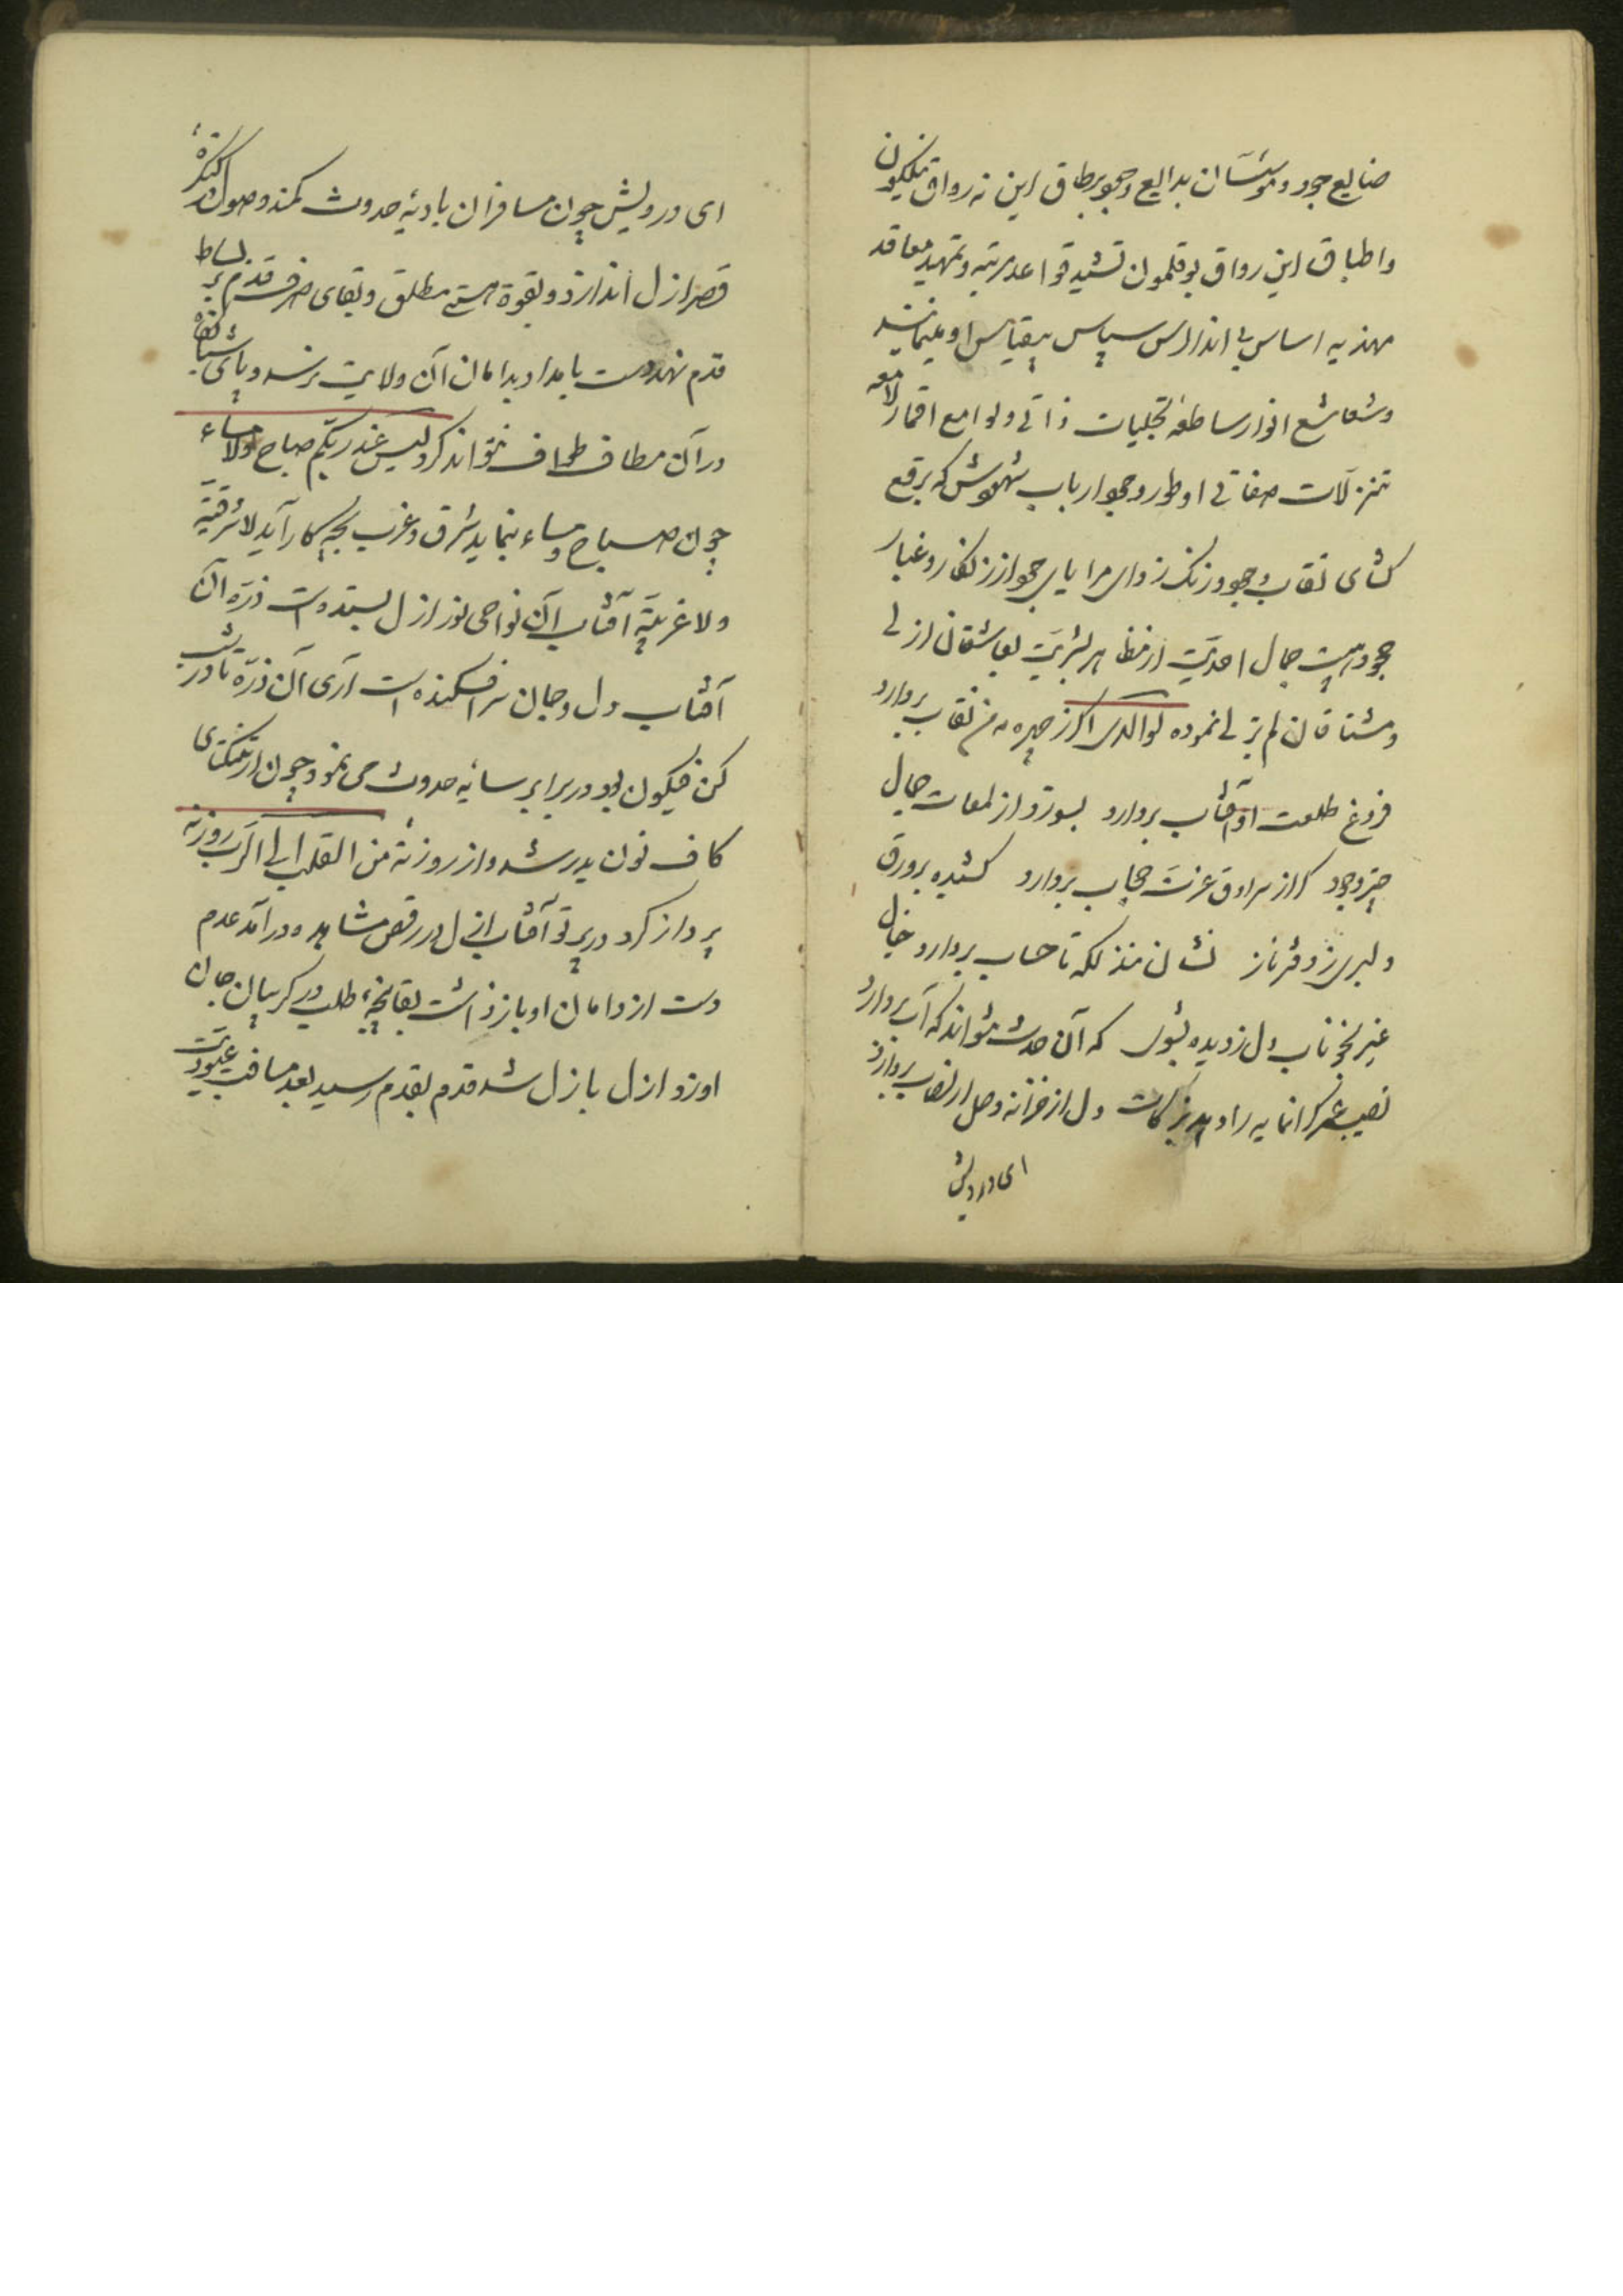 صنایع وجود و مؤسسان بدایع وجوب بر طاق این نه رواق نیلگون
و اطباق این رواق بوقلمون تشیید قواعد مرتبه و تمهید معاقد
مهذبه اساس بی اندراس سپاس بیقیاس او مینمایند
و شعاشع انوار ساطعه تجلیات ذاتی و لوامع اقمار لامعه
تنزلات صفاتی او طور وجود ارباب شهودش که برقع
کشای نقاب وجود و زنک زدای مرایای وجود از زنکار و غبار
جمال احدیت از مظاهر بشریت بعاشقان ازلی
و مشتاقان لم یزلی نموده اگر ز چهره من نقاب بردارد
فروغ طلعت او آفتاب بردارد بسوزد از لمعات جمال
وجود کر از سرادق عزت حجاب بردارد کشیده بر ورق
دلبری ز دفتر ناز نشان فذلکه تا حساب بردارد خیال
غیر بخوناب دل ز دیده بشوی که آن حدث نتواند که آب بردارد
نصیب عمر کرانمایه را دهد بزکات دل از خزانه وصل ار نصاب بردارد
ای درویش
ای درویش چون مسافران بادیهٔ حدوث کمند وصول در کنکرهٔ
قصر ازل اندازد و بقوة هستی مطلق و بقای صرف قدم بر بساط
قدم نهد دست بامداد بدامان آن ولایت نرسد و پای شبانکاه
در آن مطاف طواف نتواند کرد لیس عند ربکم صباح ولا مساء
چون صباح و مساء ننماید شرق و غرب بچه کار آید لا شرقیة
ولا غربیة آفتاب آن نواحی نور ازل بسنده است ذره آن
آفتاب دل و جان سرافکنده است آری آن ذره تا در شب
کن فیکون بود در برابر سایه حدوث می نمود چون از تنکنای
کاف نون بدر شد و از روزنهٔ من القلب الی الرب روزنه
پرواز کرد در پرتو آفتاب ازل در رقص مشاهده درآمد عدم
دست از دامان او باز داشت بقا پنجهٔ طلب در کریبان جان
او زد ازل بازل شد قدم بقدم رسید بعد مسافت عبودیت